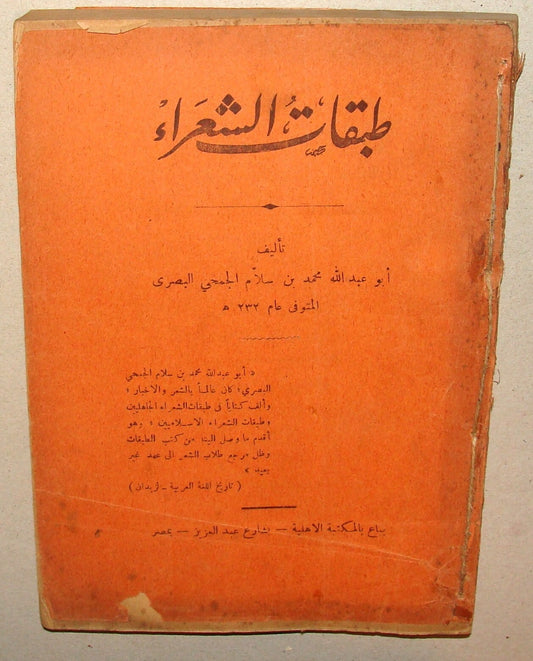 طبقات الشعراء
تأليف
أبو عبد الله محمد بن سلاّم الجمحي البصرى
المتوفى عام ٢٣٢ ھ
« أبو عبدالله محمد بن سلام الجمحي
البصري ؛ كان عالماً بالشعر والاخبار ؛
وألف كتاباً فى طبقات الشعراء الجاهليين
وطبقات الشعراء الاسلاميين ؛ وهو
أقدم ما وصل الينا من كتب الطبقات
وظل مرجع طلاب الشعر الى عهد غير
بعيد »
( تاريخ اللغة العربية - لزيدان )
يباع بالمكتبة الاهلية — بشارع عبد العزيز — بمصر